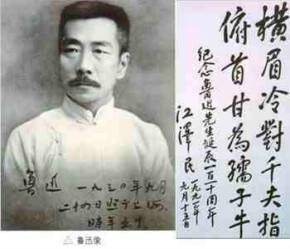 魯迅
一九三〇年九月
二十四日照于上海
時年五十
△ 鲁迅像
橫眉冷對千夫指
俯首甘為孺子牛
紀念魯迅先生誕辰一百一十周年
江澤民
一九九一年
九月十五日